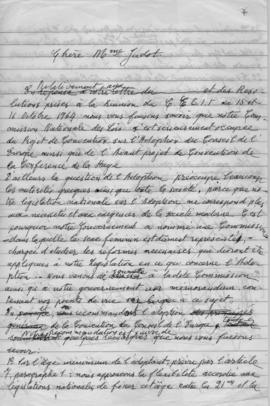 7
Chère Mme Judot
Relativement aux
et des Réso-
lutions prises à la Réunion du C.E.C.I.F du 15 et
16 Octobre 1964 nous vous faisons savoir que notre Com-
mission Nationale des Lois s'est sérieusement occupée
du Projet de Convention sur l'Adoption du Conseil de l'
Europe ainsi que de l'Avant projet de Convention de
la Conférence de la Haye.
D'ailleurs la question de l'Adoption préoccupe beaucoup
les autorités grecques ainsi que toute la société, parce que no-
tre législation nationale sur l'Adoption ne correspond plus
aux nécessités et aux exigences de la société moderne. C'est
pourquoi notre Gouvernement a nommé une Commission
dans laquelle le sexe féminin est dûment représenté,
chargée d'étudier les réformes nécessaires qui doivent être
à notre législation, en ce qui concerne l'Adop-
tion. Nous venons de soumettre à la dite Commission
ainsi qu'à notre gouvernement un memorandum con-
tenant nos points de vue à ce sujet.
nous recommandons l'adoption
de la Convention du Conseil de l'Europe
quelques que nous vous faisons
savoir:
Sur l'âge minimum de l'adoptant prévu par l'article
7, paragraphe 1: nous approuvons la flexibilité accordée aux
législations nationales de fixer cet âge entre la 21me et la